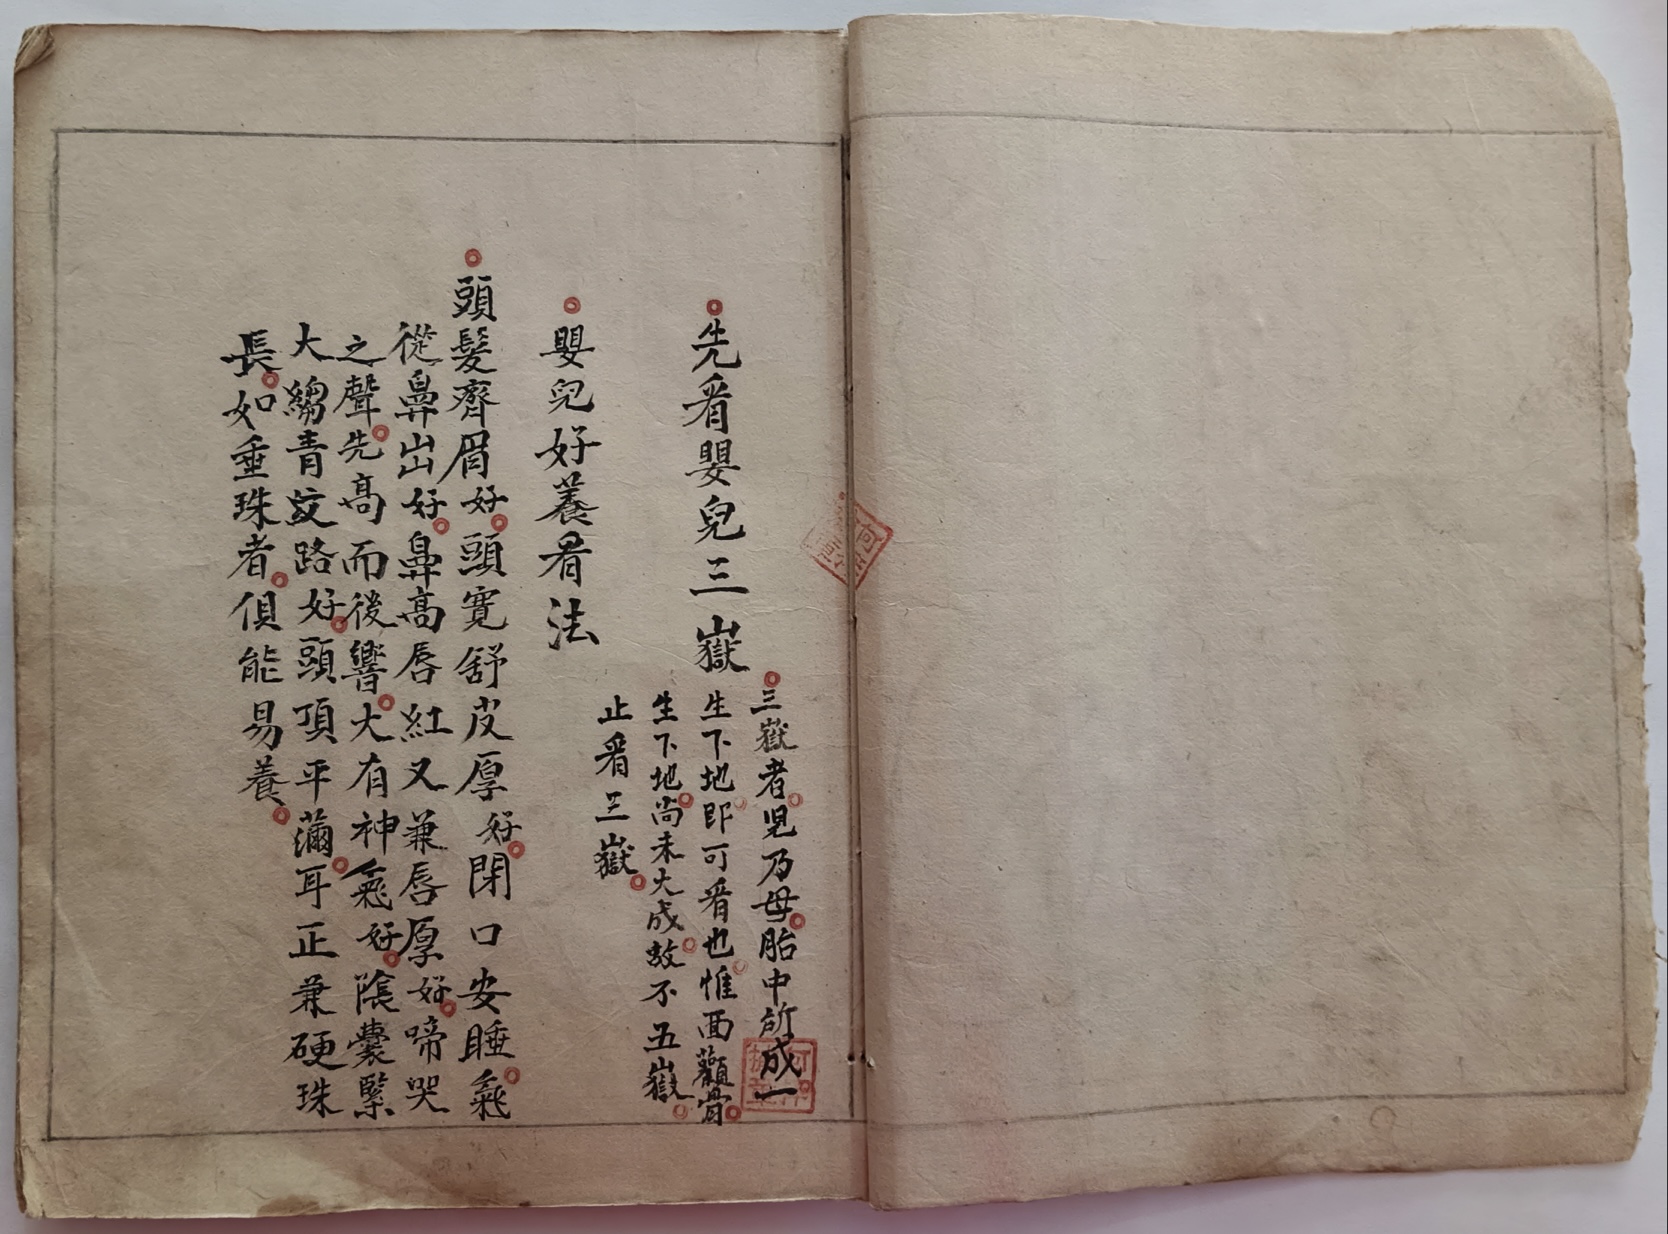 先看嬰兒三嶽
三嶽者兒乃母胎中所成一
生下地即可看也惟面顴骨
生下地尚未大成故不五嶽
止看三嶽
嬰兒好養看法
頭髮齊眉好頭寬舒皮厚好閉口安睡氣
從鼻出好鼻高唇紅又兼唇厚好啼哭
之聲先高而後響大有神氣好陰囊緊
大縐青紋路好頭頂平滿耳正兼硬珠
長如垂珠者俱能易養